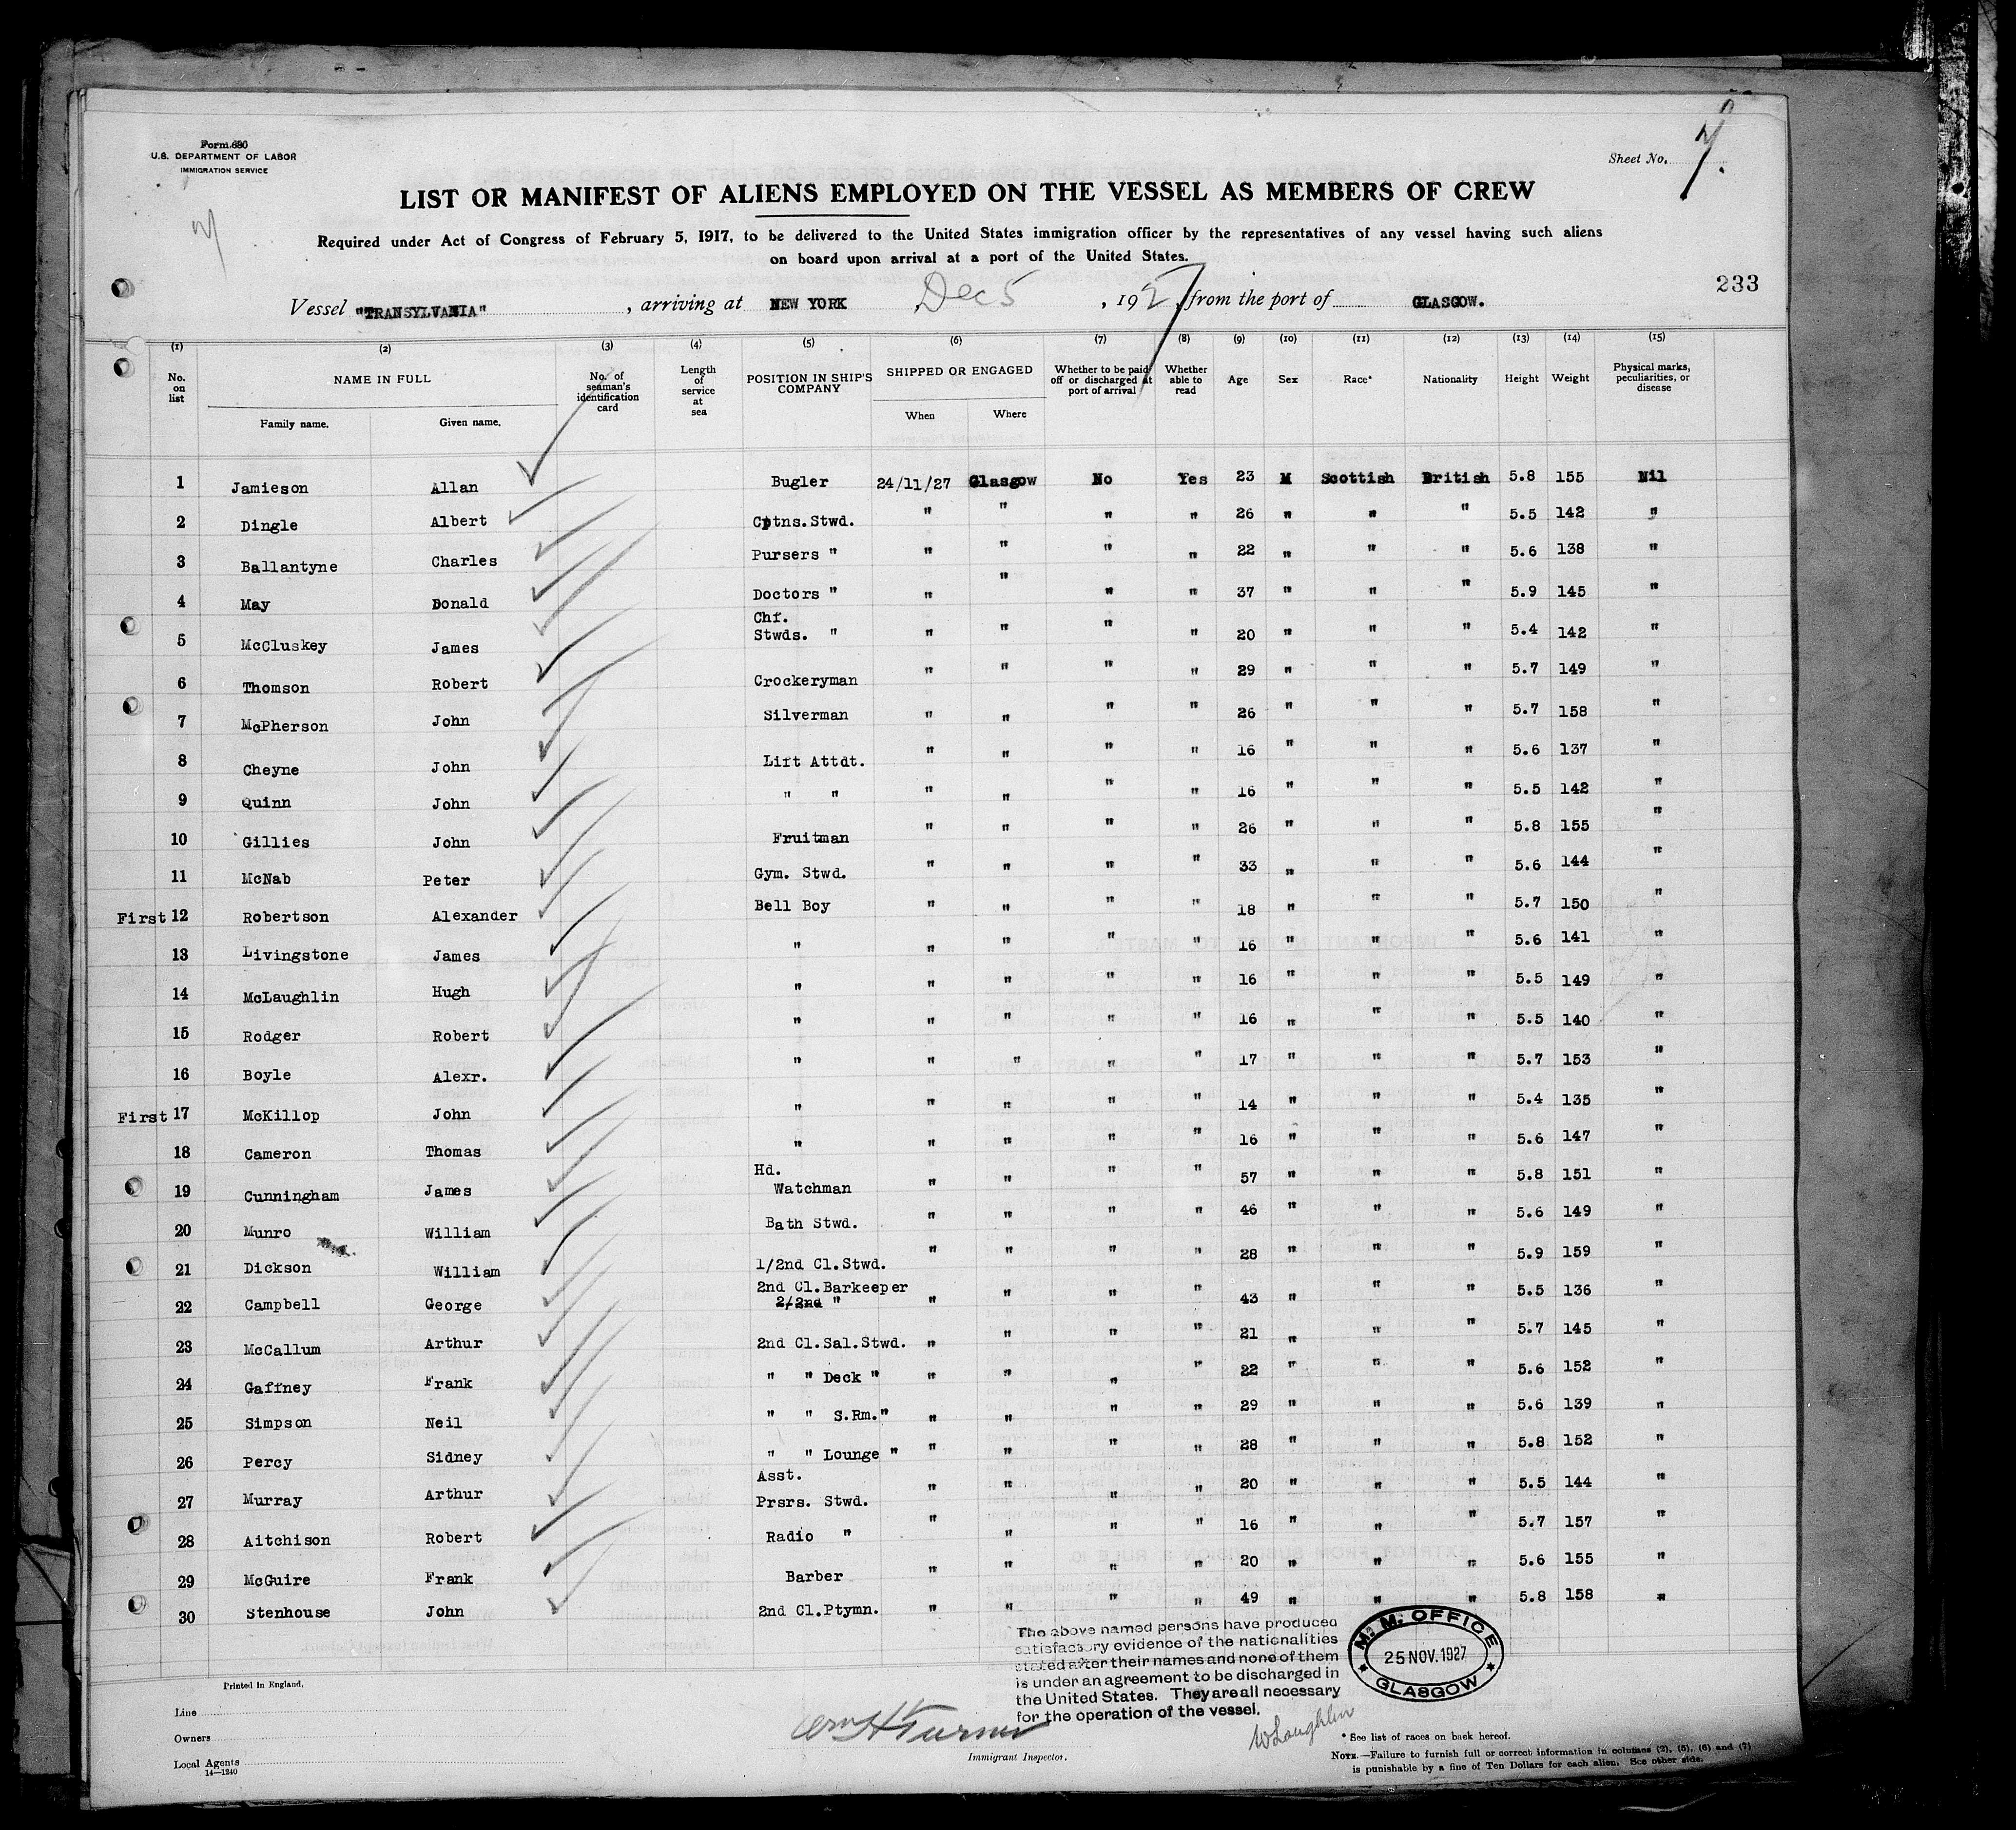 Form 680
U.S. DEPARTMENT OF LABOR
IMMIGRATION SERVICE
Sheet No.
LIST OR MANIFEST OF ALIENS EMPLOYED ON THE VESSEL AS MEMBERS OF CREW
Required under Act of Congress of February 5, 1917, to be delivered to the United States immigration officer by the representatives of any vessel having such aliens
on board upon arrival at a port of the United States.
233
Vessel "TRANSYLVANIA", arriving at NEW YORK Dec 5, 1927, from the port of GLASGOW.
(1) (2) (3) (4) (5) (6) (7) (8) (9) (10) (11) (12) (13) (14) (15)
No. on list NAME IN FULL Family name. Given name. No. of seaman's identification card Length of service at sea POSITION IN SHIP'S COMPANY SHIPPED OR ENGAGED When Where Whether to be paid off or discharged at port of arrival Whether able to read Age Sex Race* Nationality Height Weight Physical marks, peculiarities, or disease
1 Jamieson Allan Bugler 24/11/27 Glasgow No Yes 23 M Scottish British 5.8 155 Nil
2 Dingle Albert Cptns.Stwd. " " " " 26 " " " 5.5 142 "
3 Ballantyne Charles Pursers " " " " " 22 " " " 5.6 138 "
4 May Donald Doctors " " " " " 37 " " " 5.9 145 "
5 McCluskey James Chf. Stwds. " " " " " 20 " " " 5.4 142 "
6 Thomson Robert Crockeryman " " " " 29 " " " 5.7 149 "
7 McPherson John Silverman " " " " 26 " " " 5.7 158 "
8 Cheyne John Lift Attdt. " " " " 16 " " " 5.6 137 "
9 Quinn John " " " " " " 16 " " " 5.5 142 "
10 Gillies John Fruitman " " " " 26 " " " 5.8 155 "
11 McNab Peter Gym. Stwd. " " " " 33 " " " 5.6 144 "
First 12 Robertson Alexander Bell Boy " " " " 18 " " " 5.7 150 "
13 Livingstone James " " " " " 16 " " " 5.6 141 "
14 McLaughlin Hugh " " " " " 16 " " " 5.5 149 "
15 Rodger Robert " " " " " 16 " " " 5.5 140 "
16 Boyle Alexr. " " " " " 17 " " " 5.7 153 "
First 17 McKillop John " " " " " 14 " " " 5.4 135 "
18 Cameron Thomas " " " " " 16 " " " 5.6 147 "
19 Cunningham James Hd. Watchman " " " " 57 " " " 5.8 151 "
20 Munro William Bath Stwd. " " " " 46 " " " 5.6 149 "
21 Dickson William 1/2nd Cl.Stwd. " " " " 28 " " " 5.9 159 "
22 Campbell George 2nd Cl.Barkeeper 2/2nd " " " " " 43 " " " 5.5 136 "
23 McCallum Arthur 2nd Cl.Sal.Stwd. " " " " 21 " " " 5.7 145 "
24 Gaffney Frank " " Deck " " " " " 22 " " " 5.6 152 "
25 Simpson Neil " " S.Rm." " " " " 29 " " " 5.6 139 "
26 Percy Sidney " " Lounge " " " " " 28 " " " 5.8 152 "
27 Murray Arthur Asst. Prsrs. Stwd. " " " " 20 " " " 5.5 144 "
28 Aitchison Robert Radio " " " " " 16 " " " 5.7 157 "
29 McGuire Frank Barber " " " " 20 " " " 5.6 155 "
30 Stenhouse John 2nd Cl.Ptymn. " " " " 49 " " " 5.8 158 "
The above named persons have produced
satisfactory evidence of the nationalities
stated after their names and none of them
is under an agreement to be discharged in
the United States. They are all necessary
for the operation of the vessel.
M. M. OFFICE
25 NOV. 1927
GLASGOW
Printed in England.
Line
Owners
Local Agents
14—1240
Wm H Turner
Immigrant Inspector.
W Loughlin
* See list of races on back hereof.
NOTE.—Failure to furnish full or correct information in columns (2), (5), (6) and (7)
is punishable by a fine of Ten Dollars for each alien. See other side.